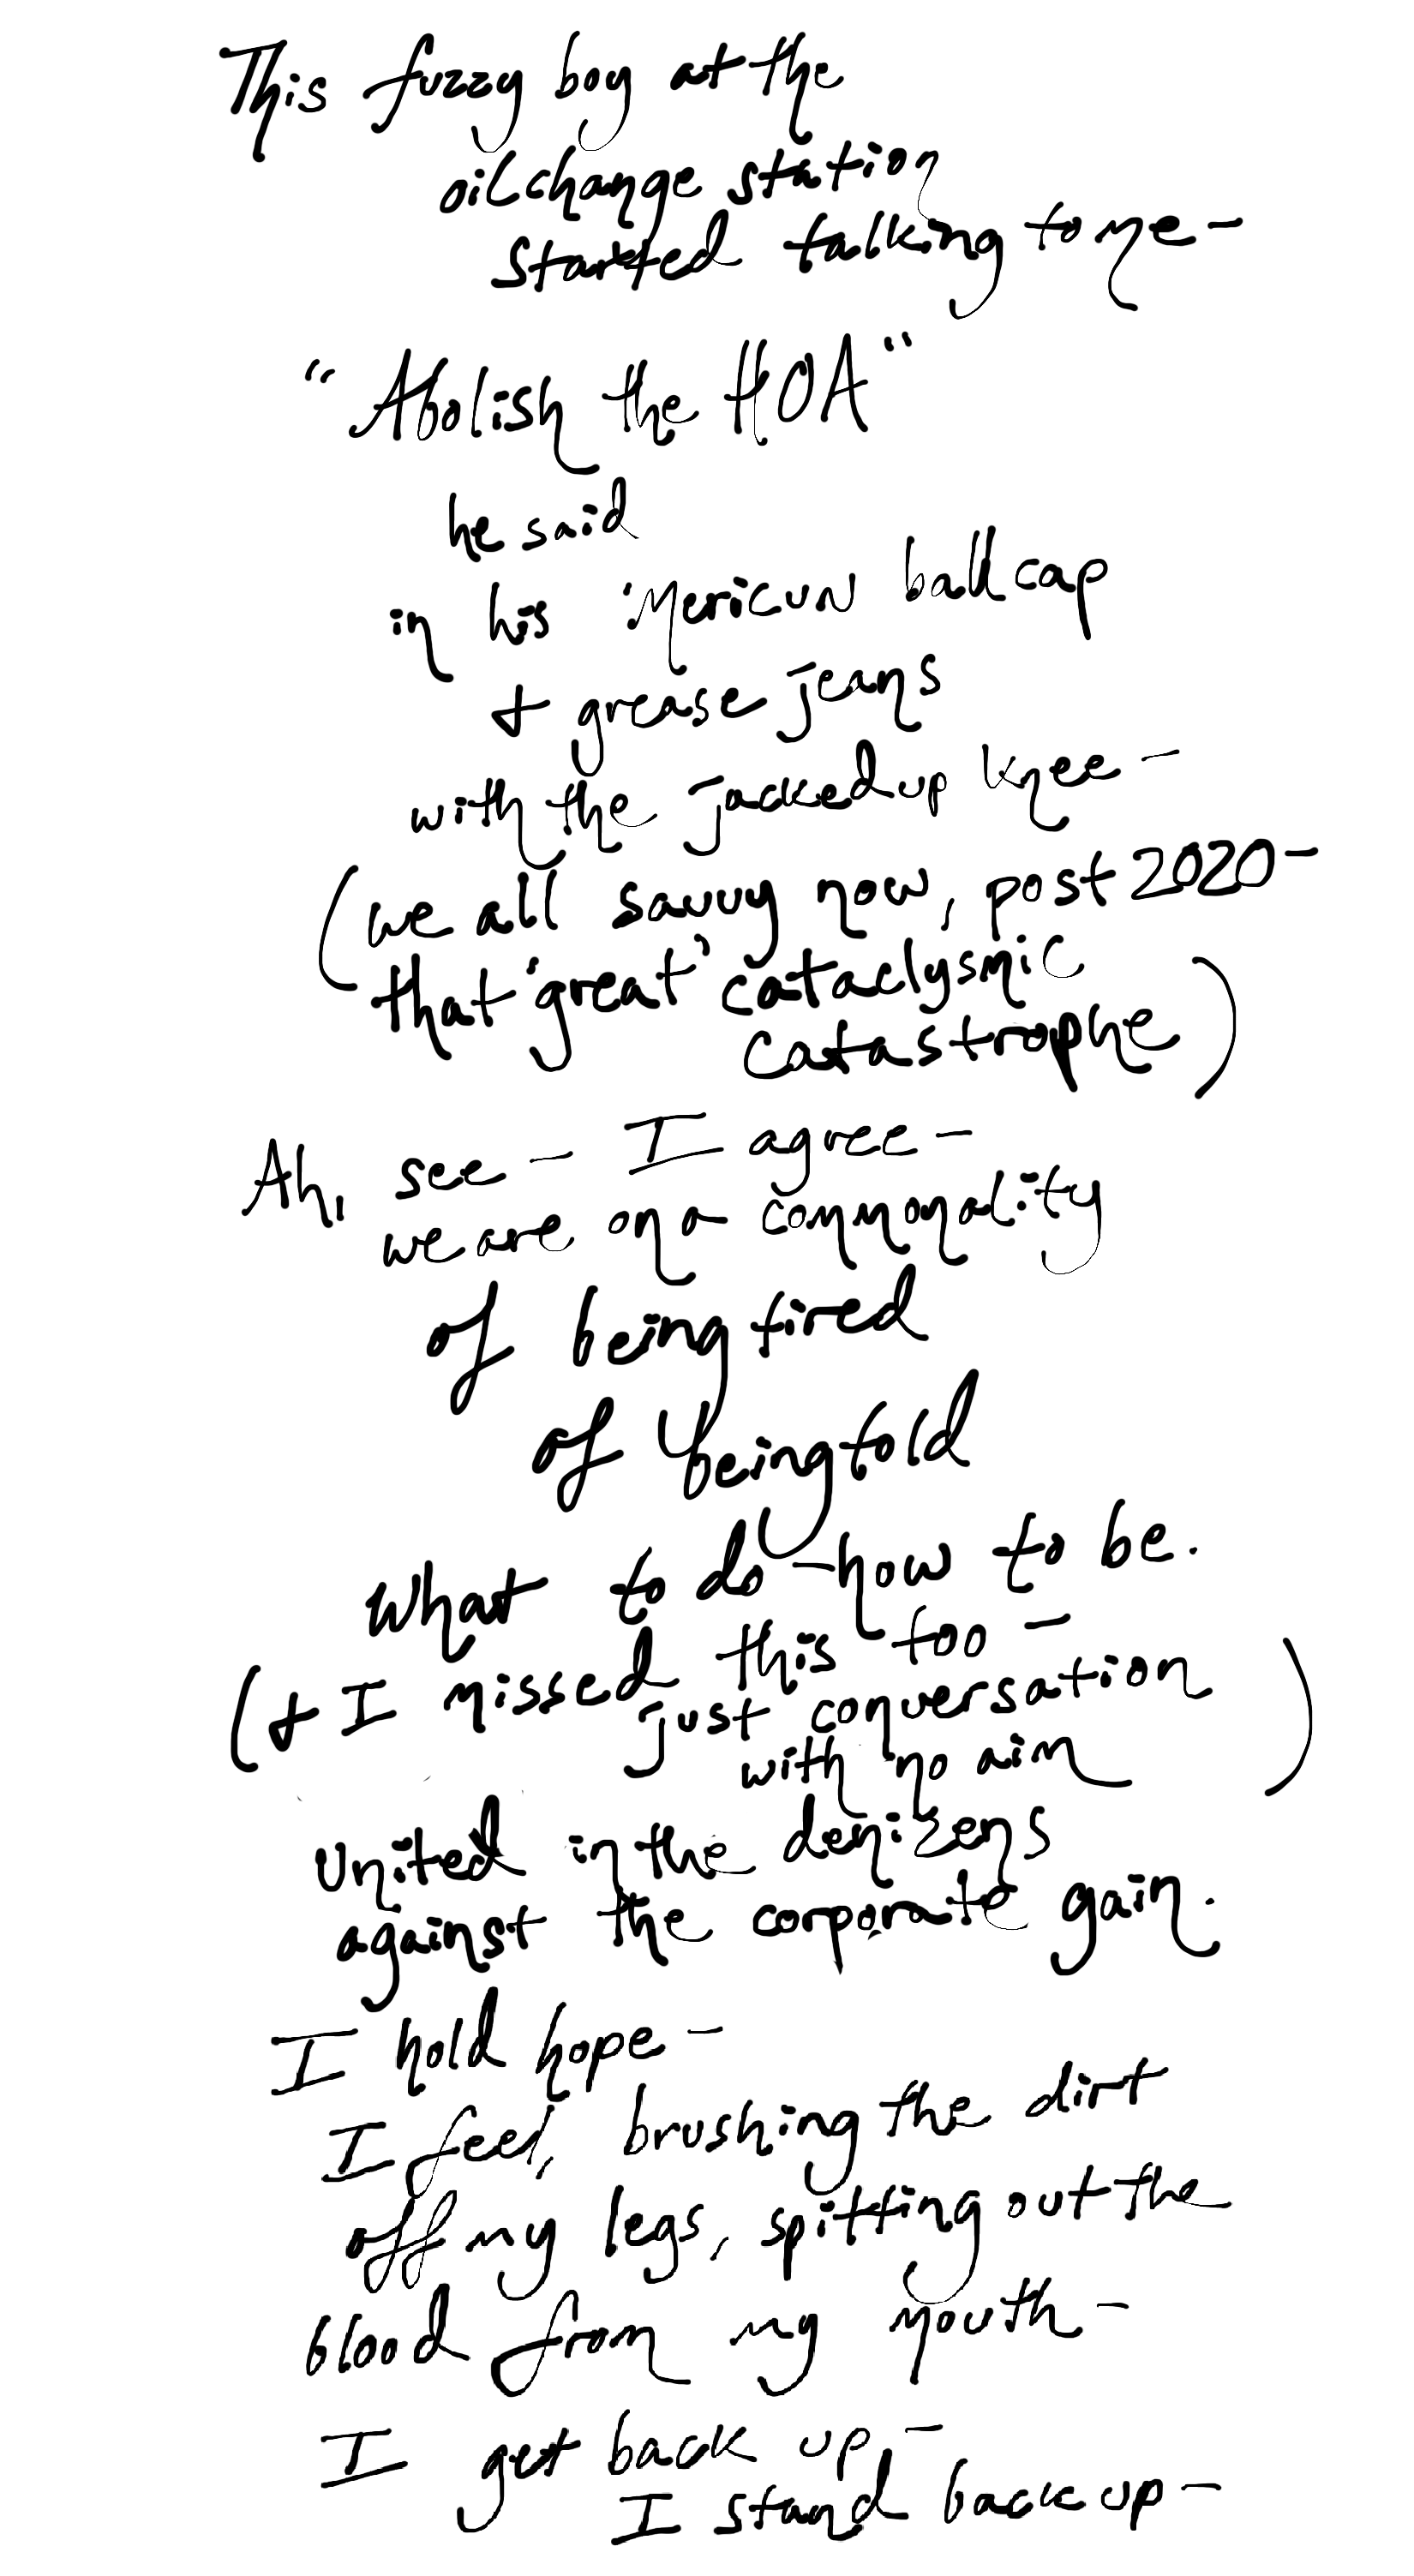 This fuzzy boy at the
oil change station
started talking to me -
"Abolish the HOA"
he said
in his 'Mericun ball cap
+ grease jeans
with the jacked up knee -
(we all savvy now, post 2020 -
that 'great' cataclysmic
catastrophe)
Ah, see - I agree -
we are on a commonality
of being tired
of being told
what to do - how to be.
(+ I missed this too -
just conversation
with no aim)
United in the denizens
against the corporate gain.
I hold hope -
I feel, brushing the dirt
off my legs, spitting out the
blood from my mouth -
I get back up -
I stand back up -